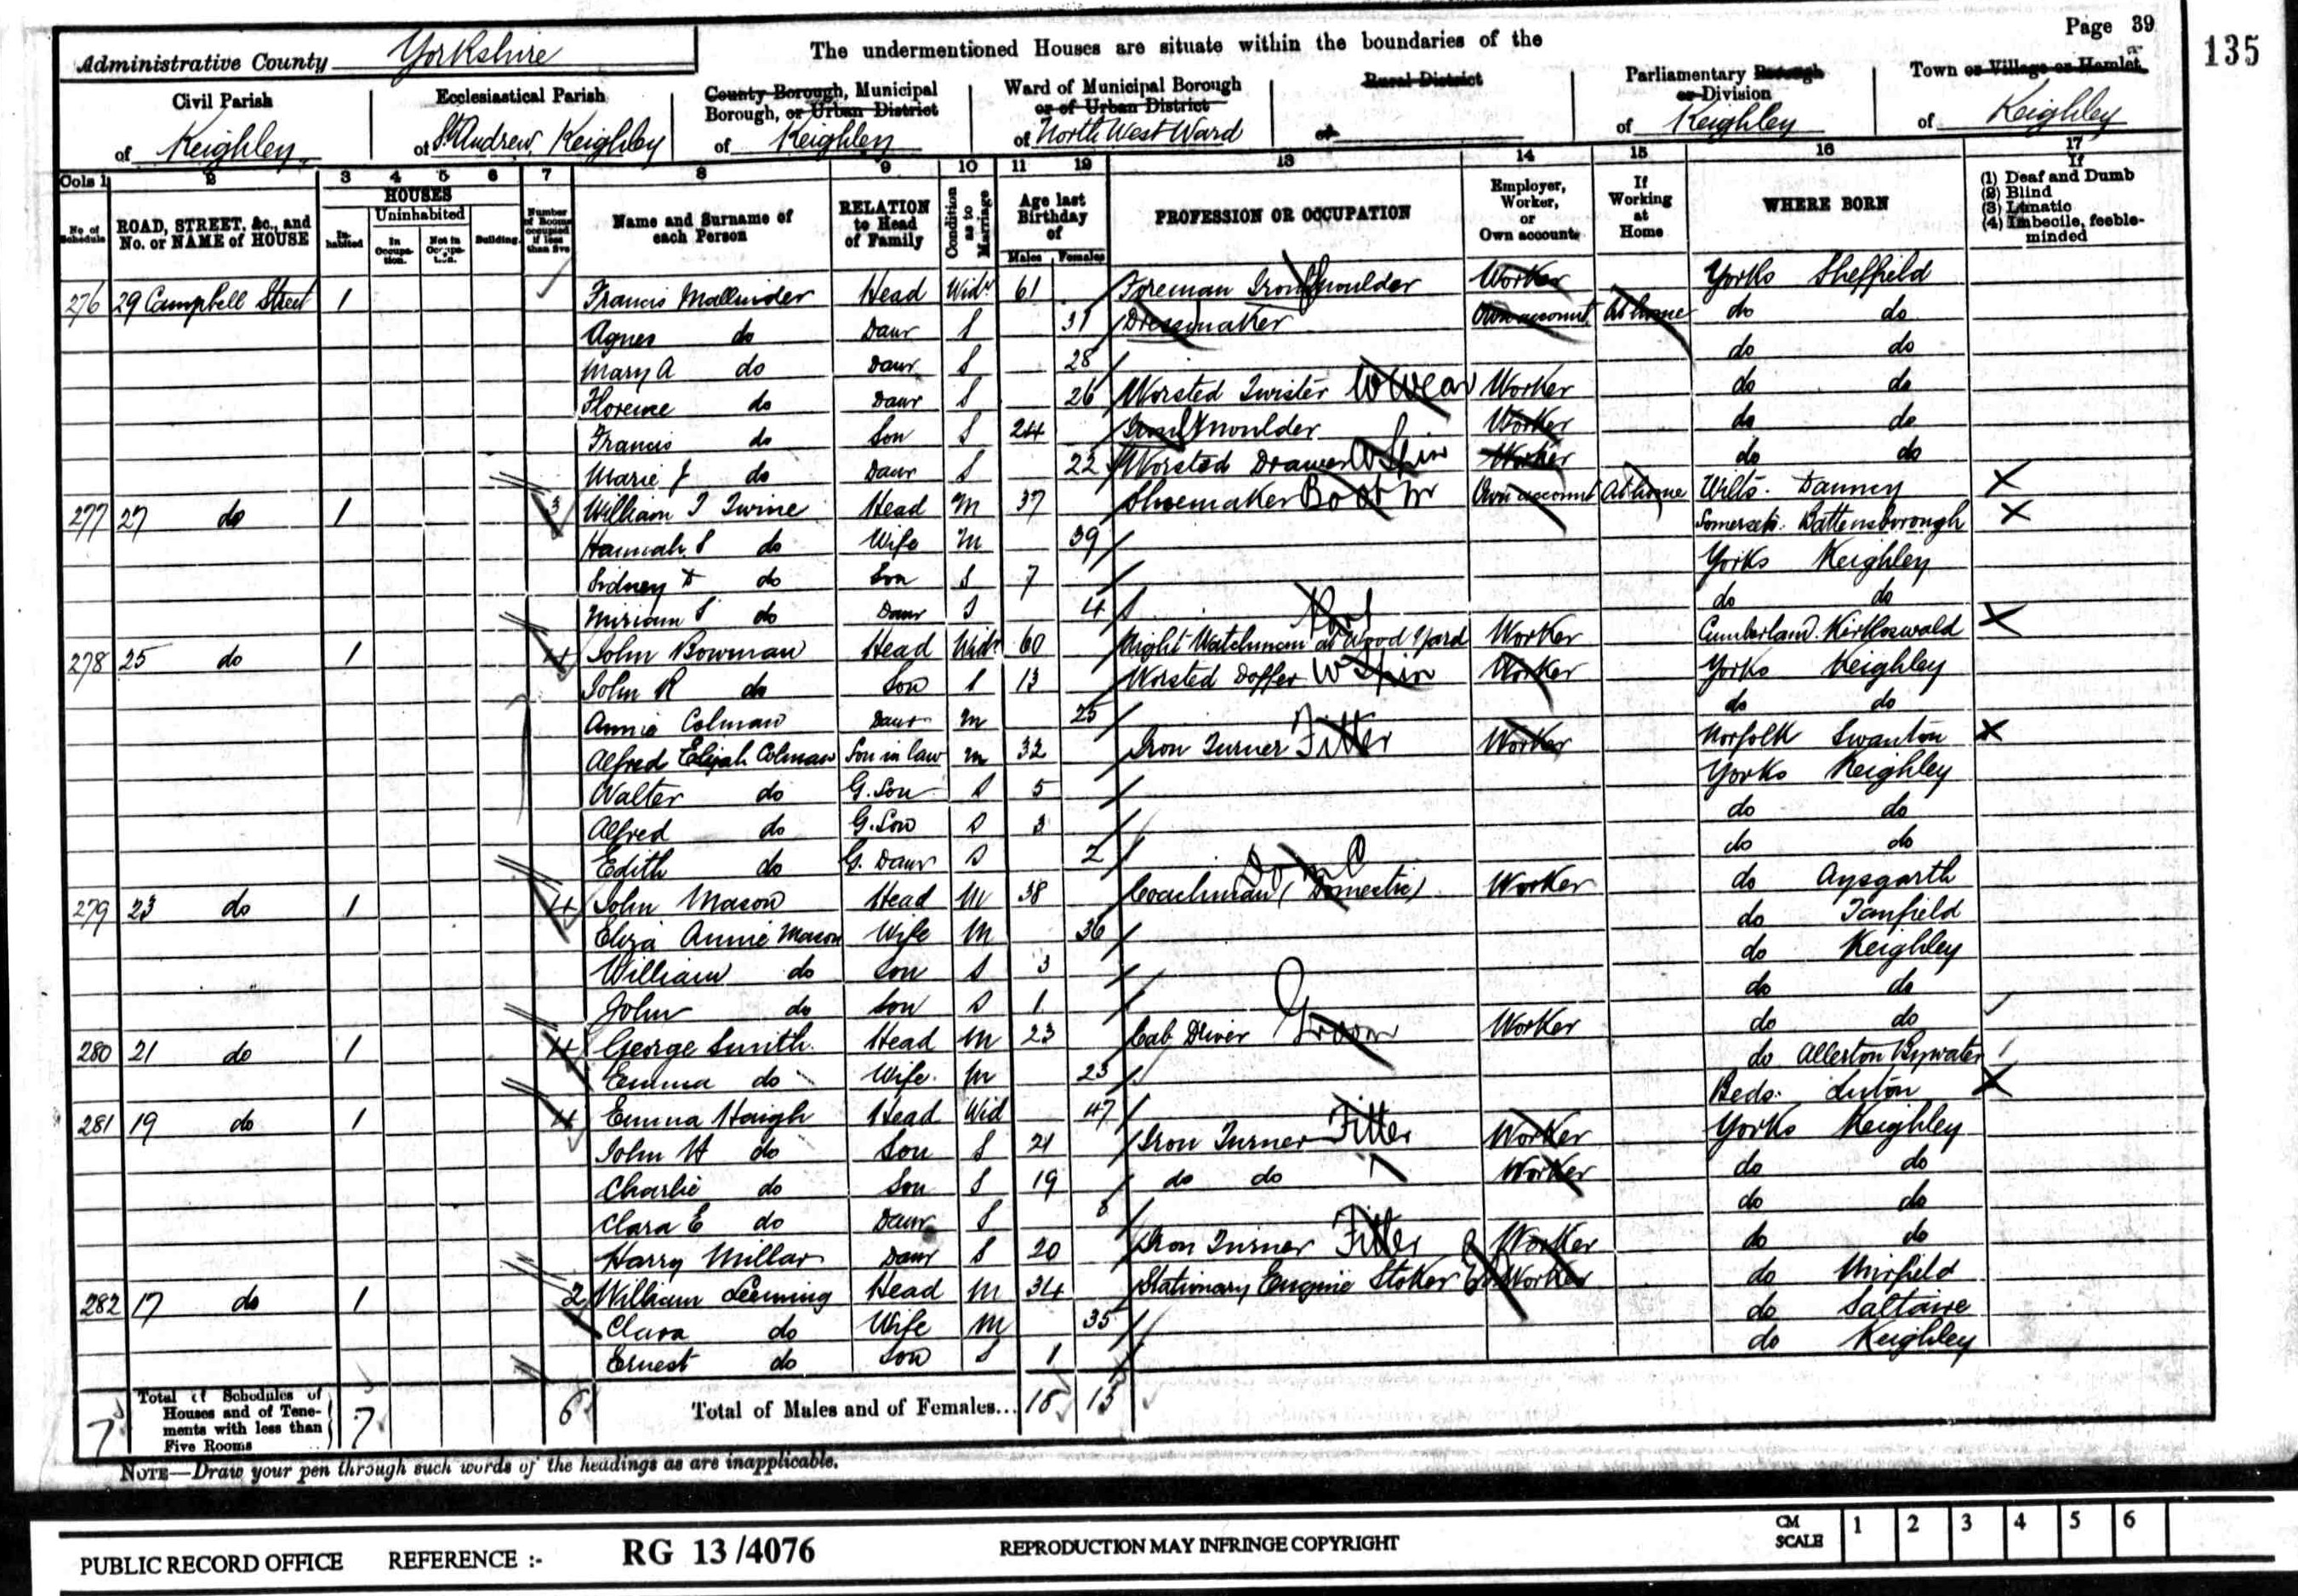 Page 39
135
Administrative County Yorkshire
The undermentioned Houses are situate within the boundaries of the
Civil Parish of Keighley
Ecclesiastical Parish of St Andrew, Keighley
County Borough, Municipal Borough, or Urban District of Keighley
Ward of Municipal Borough or of Urban District of North West Ward
Rural District of
Parliamentary Borough or Division of Keighley
Town or Village or Hamlet of Keighley
Cols 1 2 3 4 5 6 7 8 9 10 11 12 13 14 15 16 17
No. of Schedule
ROAD, STREET, &c., and No. or NAME of HOUSE
HOUSES
Inhabited
Uninhabited
In Occupation.
Not in Occupation.
Building.
Number of Rooms occupied if less than five
Name and Surname of each Person
RELATION to Head of Family
Condition as to Marriage
Age last Birthday of
Males Females
PROFESSION OR OCCUPATION
Employer, Worker, or Own account
If Working at Home
WHERE BORN
If
(1) Deaf and Dumb
(2) Blind
(3) Lunatic
(4) Imbecile, feeble-minded
276 29 Campbell Street 1 Francis Mallinder Head Widr 61 Foreman Iron Moulder Worker Yorks Sheffield
Agnes do Daur S 31 Dressmaker Own account At home do do
Mary A do Daur S 28 do do
Florence do Daur S 26 Worsted Twister W Weav Worker do do
Francis do Son S 24 Iron Moulder Worker do do
Marie J do Daur S 22 Worsted Drawer W Spin Worker do do
277 27 do 1 3 William J Twine Head M 37 Shoemaker Boot Mr Own account At home Wilts. Dauney X
Hannah S do Wife M 39 Somerset. Battensborough X
Sidney D do Son S 7 Yorks Keighley
Miriam S do Daur S 4 do do
278 25 do 1 4 John Bowman Head Widr 60 Night Watchman at Wood Yard Worker Cumberland. Kirkoswald X
John R do Son S 13 Worsted Doffer W Spin Worker Yorks Keighley
Annie Colman Daur M 25 do do
Alfred Elijah Colman Son in law M 32 Iron Turner Fitter Worker Norfolk Swanton X
Walter do G. Son S 5 Yorks Keighley
Alfred do G. Son S 3 do do
Edith do G. Daur S 2 do do
279 23 do 1 4 John Mason Head M 38 Coachman (Domestic) Dom Worker do Aysgarth
Eliza Annie Mason Wife M 36 do Tanfield
William do Son S 3 do Keighley
John do Son S 1 do do
280 21 do 1 4 George Smith Head M 23 Cab Driver Groom Worker do do
Emma do Wife M 23 do Allerton Bywater
281 19 do 1 4 Emma Haigh Head Wid 47 Beds. Luton X
John H do Son S 21 Iron Turner Fitter Worker Yorks Keighley
Charlie do Son S 19 do do Worker do do
Clara E do Daur S 8 do do
Harry Millar Daur S 20 Iron Turner Fitter Worker do do
282 17 do 1 2 William Leeming Head M 34 Stationary Engine Stoker Worker do Mirfield
Clara do Wife M 35 do Saltaire
Ernest do Son S 1 do Keighley
7 Total of Schedules of Houses and of Tenements with less than Five Rooms 7 6 Total of Males and of Females... 18 13
NOTE—Draw your pen through such words of the headings as are inapplicable.
PUBLIC RECORD OFFICE REFERENCE :- RG 13/4076 REPRODUCTION MAY INFRINGE COPYRIGHT CM SCALE 1 2 3 4 5 6